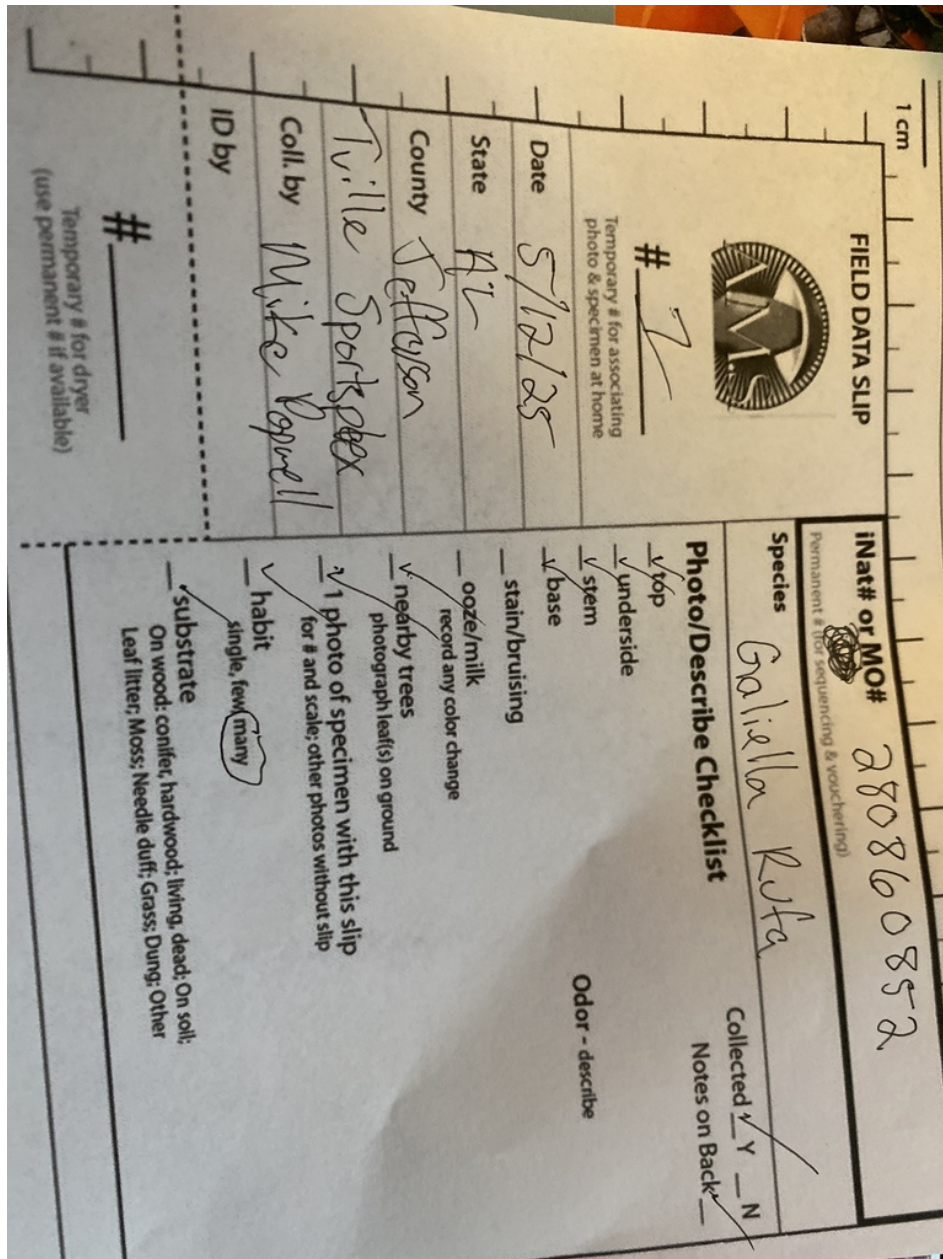 1 cm
FIELD DATA SLIP
# 7
Temporary # for associating
photo & specimen at home
Date 5/12/25
State AL
County Jefferson
Tville Sportsplex
Coll. by Mike Popwell
ID by
#
Temporary # for dryer
(use permanent # if available)
iNat# or MO# 280860852
Permanent # (for sequencing & vouchering)
Species Galiella Rufa
Collected Y N
Notes on Back
Photo/Describe Checklist
top
underside
stem
base
stain/bruising
ooze/milk
record any color change
nearby trees
photograph leaf(s) on ground
1 photo of specimen with this slip
for # and scale; other photos without slip
habit
single, few, many
substrate
On wood: conifer, hardwood; living, dead; On soil;
Leaf litter; Moss; Needle duff; Grass; Dung; Other
Odor – describe